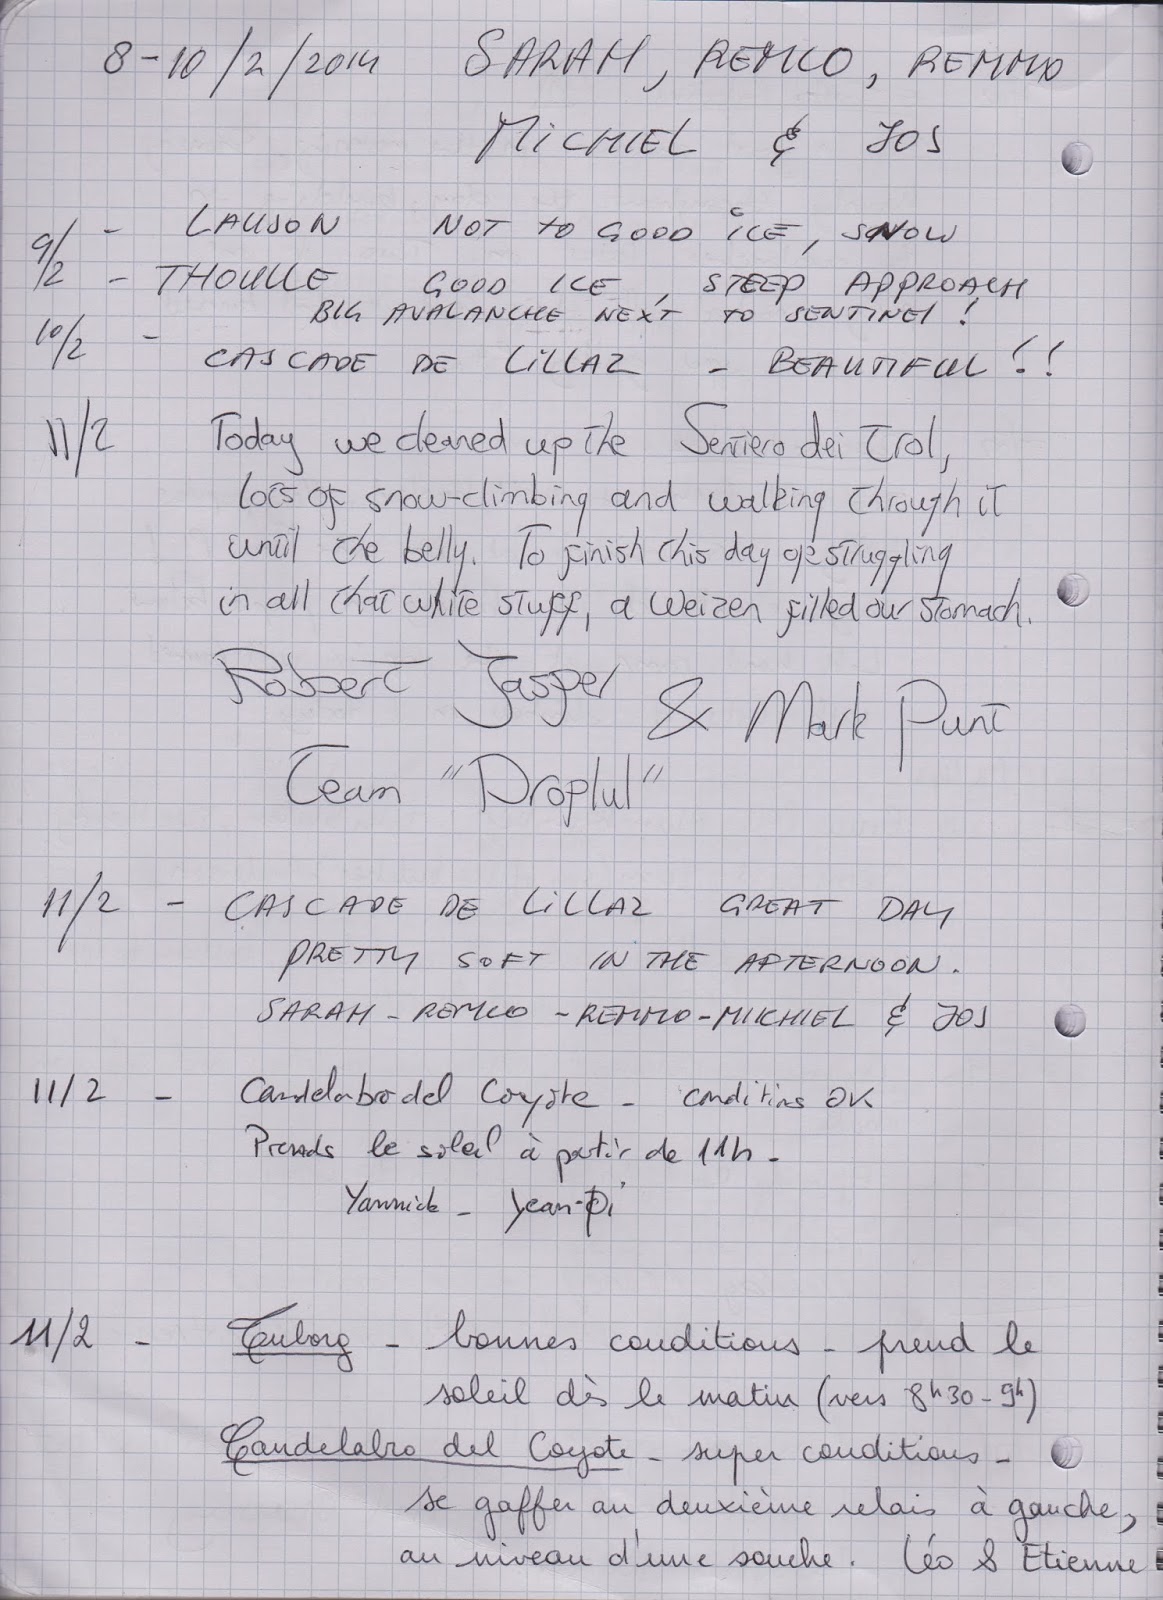 8-10/2/2014 SARAH, REMCO, REMMO
MICHIEL & JOS
9/2 - LAUSON NOT TO GOOD ICE, SNOW
- THOULLE GOOD ICE, STEEP APPROACH
BIG AVALANCHE NEXT TO SENTINEL!
10/2 - CASCADE DE LILLAZ - BEAUTIFUL!!
11/2 Today we cleaned up the Sentiero dei Trol,
lots of snow-climbing and walking through it
until the belly. To finish this day of struggling
in all that white stuff, a Weizen filled our stomach.
Robbert Jasper & Mark Punt
Team "Droplul"
11/2 - CASCADE DE LILLAZ GREAT DAY
PRETTY SOFT IN THE AFTERNOON.
SARAH - REMCO - REMMO - MICHIEL & JOS
11/2 - Candelabro del Coyote - conditins OK
Prends le soleil à partir de 11h -
Yannick - Jean-Pi
11/2 - Tuborg - bonnes conditions - prend le
soleil dès le matin (vers 8h30-9h)
Candelabro del Coyote - super conditions -
se gaffer au deuxième relais à gauche,
au niveau d'une souche. Léo & Etienne